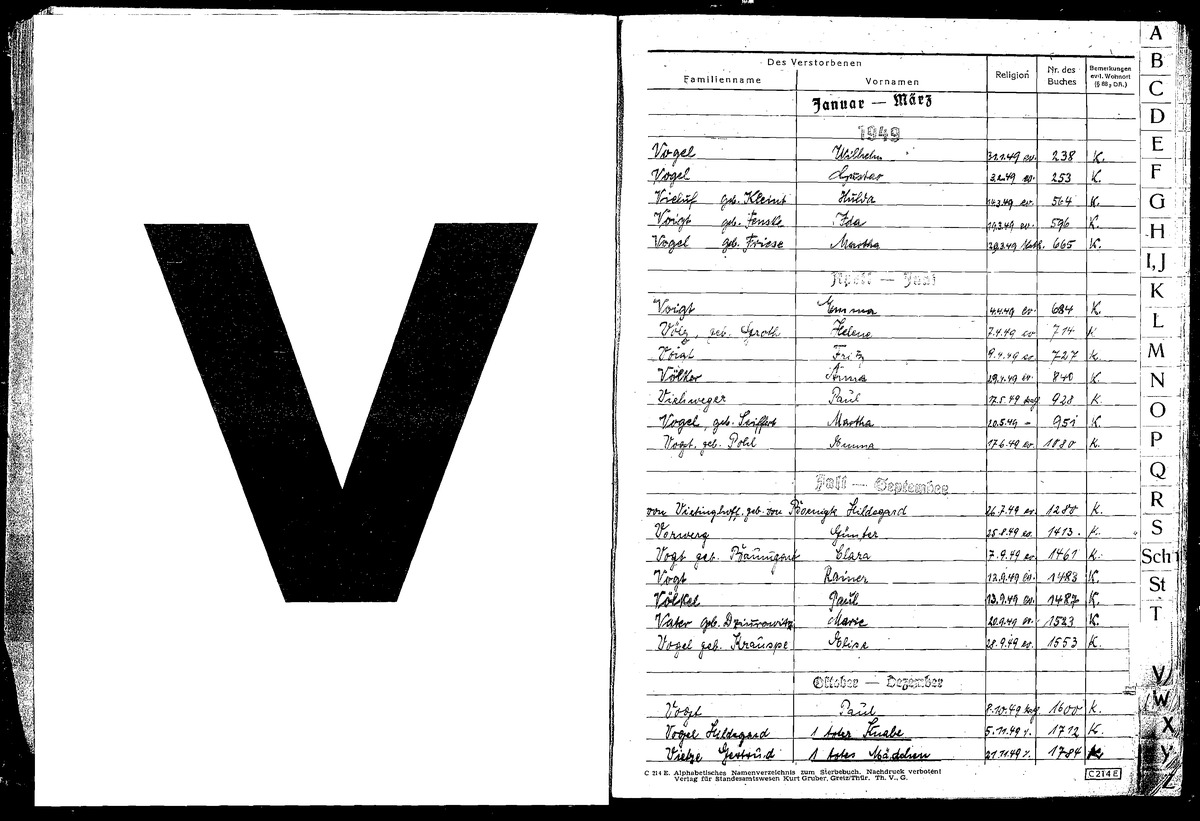 V
Des Verstorbenen
Familienname Vornamen Religion Nr. des Buches Bemerkungen evtl. Wohnort (§ 88, DA.)
Januar — März
1949
Vogel Wilhelm 31.1.49 ev. 238 K.
Vogel Gustav 3.2.49 ev. 253 K.
Vieluf geb. Kleint Hulda 14.3.49 ev. 564 K.
Voigt geb. Fenske Ida 19.3.49 ev. 596 K.
Vogel geb. Friese Martha 29.3.49 kath. 665 K.
April — Juni
Voigt Emma 4.4.49 ev. 684 K.
Völz, geb. Groth Helene 7.4.49 ev. 714 K
Voigt Fritz 9.4.49 ev. 727 K.
Völker Anna 29.4.49 ev. 840 K.
Viehweger Paul 12.5.49 928 K.
Vogel, geb. Seiffert Martha 20.5.49 – 951 K.
Vogt, geb. Pohl Emma 17.6.49 ev. 1080 K.
Juli — September
von Vietinghoff, geb. von Boenigk Hildegard 26.7.49 ev. 1280 K.
Vorwerg Günter 25.8.49 ev. 1413. K.
Vogt geb. Baumgart Clara 7.9.49 ev. 1461 K.
Vogt Rainer 12.9.49 ev. 1483 K.
Völkel Paul 13.9.49 ev. 1487 K.
Vater geb. Dziurowitz Marie 20.9.49 ev. 1523 K.
Vogel geb. Krauspe Elise 28.9.49 ev. 1553 K.
Oktober — Dezember
Vogt Paul 8.10.49 1600 K.
Vogel Hildegard 1 toter Knabe 5.11.49 1712 K.
Vietze Gertrud 1 totes Mädchen 21.11.49 1784
C 214 E. Alphabetisches Namenverzeichnis zum Sterbebuch. Nachdruck verboten!
Verlag für Standesamtswesen Kurt Gruber, Greiz/Thür. Th. V., G.
C 214 E
A
B
C
D
E
F
G
H
I, J
K
L
M
N
O
P
Q
R
S
Sch
St
T
V
W
X
Y
Z